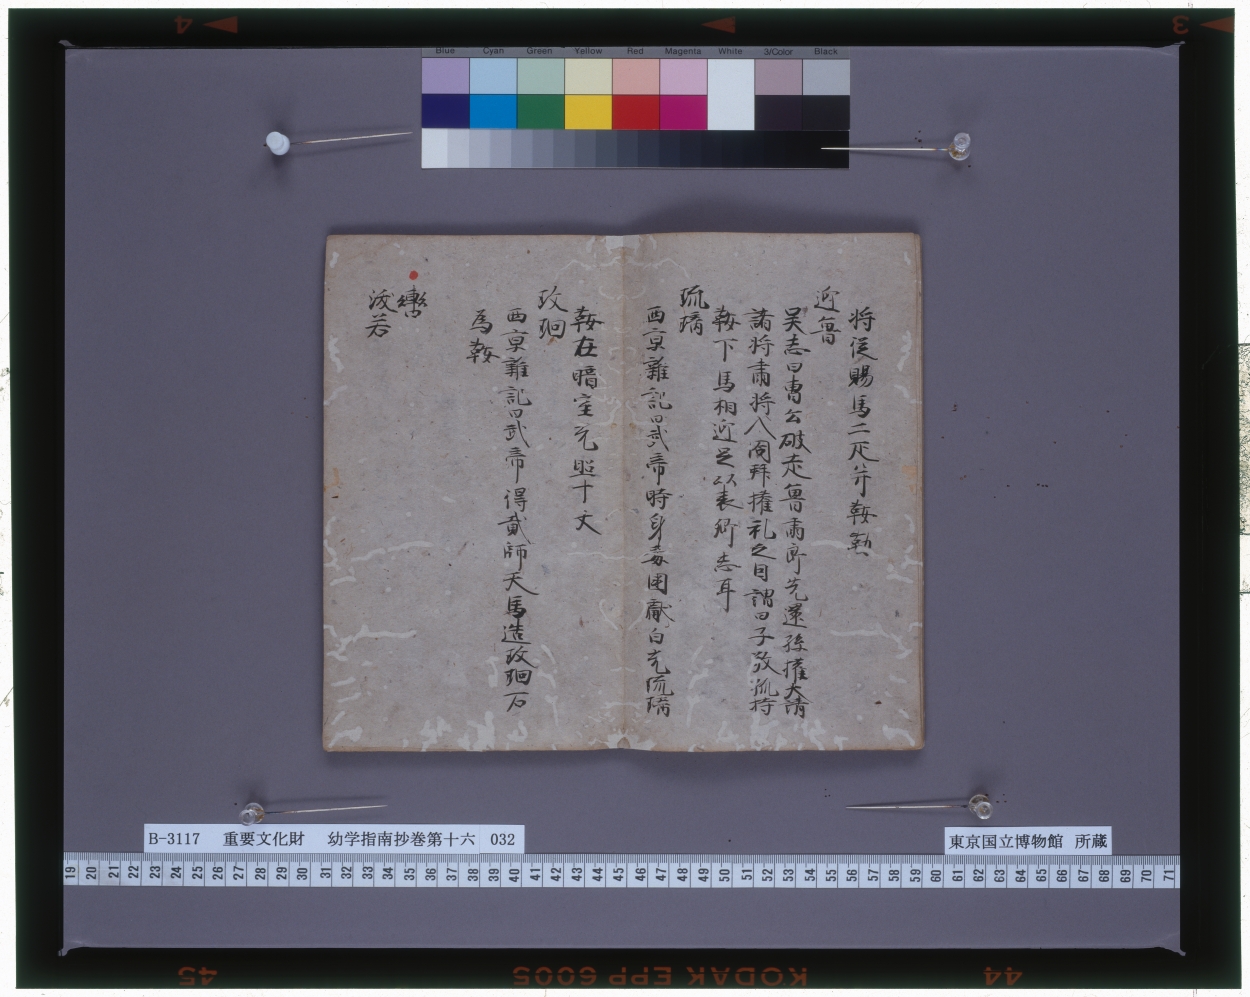 Blue Cyan Green Yellow Red Magenta White 3/Color Black
将従賜馬二疋并鞍勒
近魯
吴志曰曹公破走魯肅即先還孫權大請
諸将肅将入閤拜權礼之因謂曰子敬孤持
鞍下馬相迎足以表卿志耳
琉璃
西京雜記曰武帝時身毒国獻白光琉璃
鞍在暗室光照十丈
玫瑰
西京雜記曰武帝得貳師天馬造玫瑰石
為鞍
轡
渡若
B-3117 重要文化財 幼学指南抄巻第十六 032
東京国立博物館 所蔵
19 20 21 22 23 24 25 26 27 28 29 30 31 32 33 34 35 36 37 38 39 40 41 42 43 44 45 46 47 48 49 50 51 52 53 54 55 56 57 58 59 60 61 62 63 64 65 66 67 68 69 70 71
4
3
45
KODAK EPP 6005
44